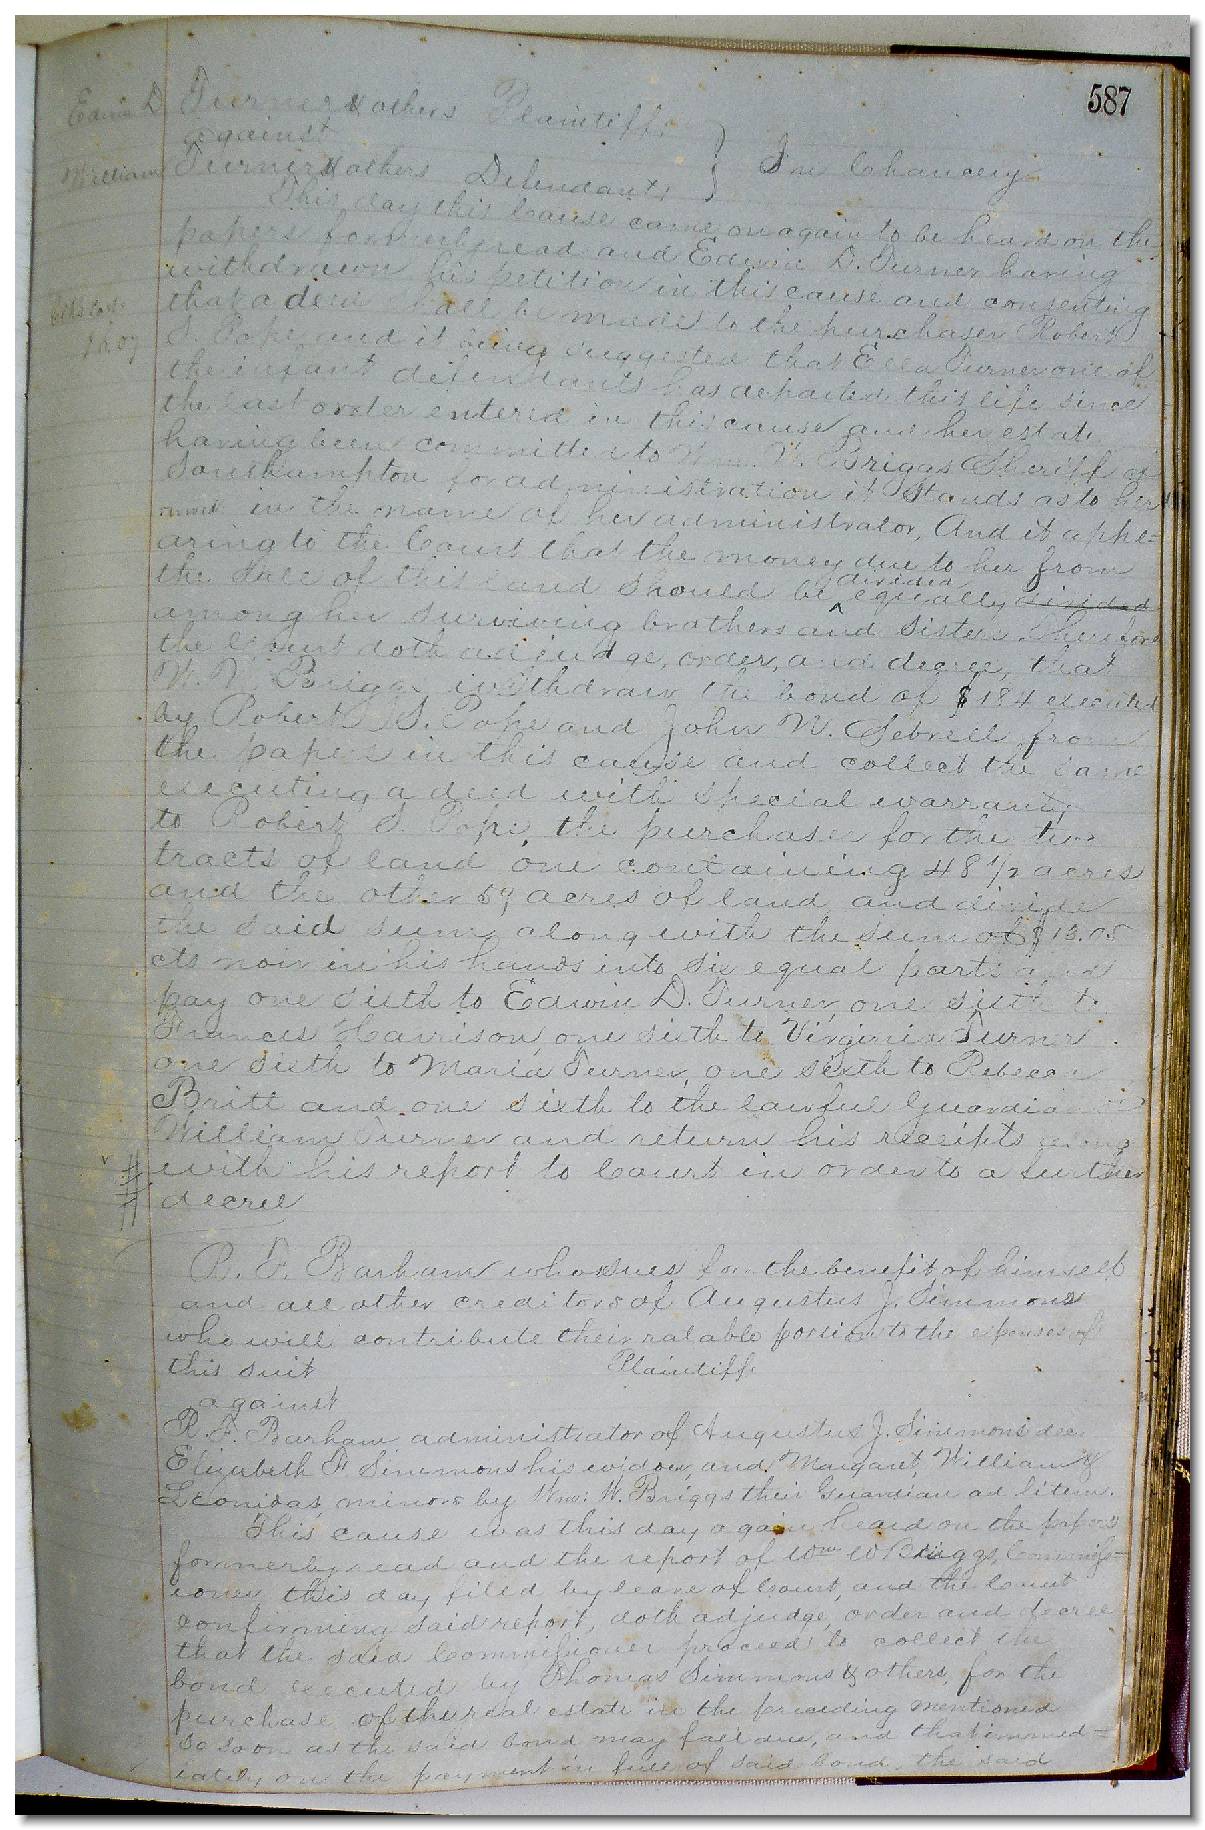 587
Edwin D Turner & others Plaintiffs
against
In Chancery
William Turner & others Defendants
This day this Cause came on again to be heard on the
papers formerly read and Edwin D. Turner having
withdrawn his petition in this cause and consenting
that a deed shall be made to the purchaser Robert
S. Pope, and it being suggested that Ella Turner one of
the infant defendants has departed this life since
the last order entered in this cause and her estate
having been committed to Wm. W. Briggs Sheriff of
Southampton for administration it stands as to her
in the name of her administrator, And it appe=
aring to the Court that the money due to her from
the Sale of this land should be ^ divided equally divided
among her surviving brothers and sisters. Therefore
the Court doth adjudge, order, and decree, that
W. W. Briggs withdraw the bond of $184 executed
by Robert S. Pope and John W. Sebrell from
the papers in this cause and collect the same
executing a deed with special warranty
to Robert S. Pope, the purchaser for the two
tracts of land one containing 48 1/2 acres
and the other 59 acres of land and divide
the said sum along with the sum of $13.05
cts now in his hands into six equal parts and
pay one sixth to Edwin D. Turner, one sixth to
Frances Harrison, one sixth to Virginia Turner
one sixth to Maria Turner, one sixth to Rebecca
Britt and one sixth to the lawful Guardian of
William Turner and return his receipts along
with his report to Court in order to a further
decree
R. F. Barham who sues for the benefit of himself
and all other creditors of Augustus J. Simmons
who will contribute their ratable portion to the expenses of
this suit Plaintiff
against
R. F. Barham administrator of Augustus J. Simmons dec.
Elizabeth F Simmons his widow, and Margaret, William &
Leonidas, minors by Wm. W. Briggs their Guardian ad litem.
This cause was this day again heard on the papers
formerly read and the report of Wm W Briggs, Commiss=
ioner this day filed by leave of Court, and the Court
confirming said report, doth adjudge, order and decree
that the said Commissioner proceed to collect the
bond executed by Thomas Simmons & others, for the
purchase of the real estate in the proceeding mentioned
so soon as the said bond may fall due, and that immed=
iately on the payment in full of said bond, the said